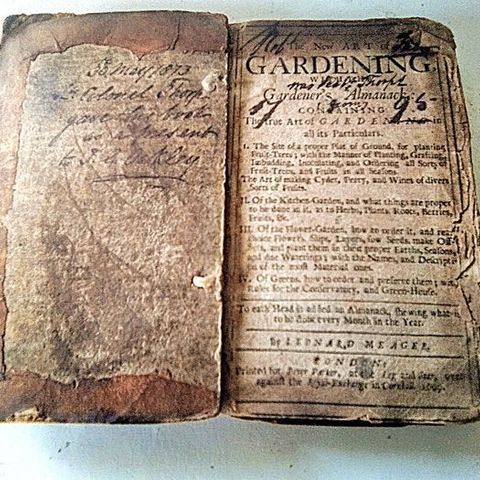 30 May 1873
The New ART of
GARDENING,
WITH THE
Gardener's Almanack:
CONTAINING
The true Art of GARDENING in
all its Particulars.
I. The Site of a proper Plat of Ground, for planting
Fruit-Trees; with the Manner of Planting, Grafting,
Imbudding, Inoculating, and Ordering all Sorts of
Fruit-Trees, and Fruits in all Seasons.
The Art of making Cyder, Perry, and Wines of divers
Sorts of Fruits.
II. Of the Kitchen-Garden, and what things are proper
to be done in it, as to Herbs, Plants, Roots, Berries,
Fruits, &c.
III. Of the Flower-Garden, how to order it, and rear
choice Flowers, Slips, Layers, sow Seeds, make Off-
sets, and plant them in their proper Earths, Seasons,
and due Waterings; with the Names, and Descripti-
on of the most Material ones.
IV. Of Greens, how to order and preserve them; with
Rules for the Conservatory, and Green-House.
To each Head is added an Almanack, shewing what is
to be done every Month in the Year.
By LEONARD MEAGER,
LONDON:
Printed for Peter Parker, at the Leg and Star, over
against the Royal-Exchange in Cornhill